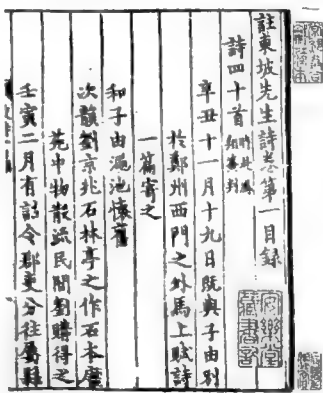 註東坡先生詩卷第一目録
詩四十首
辛丑十一月十九日既與子由別
於鄭州西門之外馬上賦詩
一篇寄之
和子由澠池懷舊
次韻劉京兆石林亭之作石本唐
苑中物散流民間劉購得之
壬寅二月有詔令郡吏分往屬縣
安樂堂藏書記